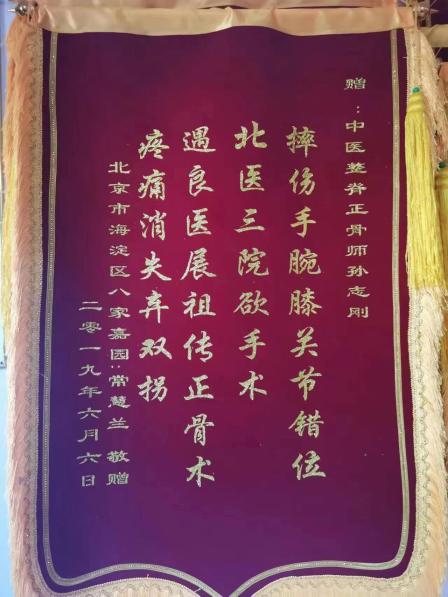 赠：中医整脊正骨师孙志刚
摔伤手腕膝关节错位
北医三院欲手术
遇良医展祖传正骨术
疼痛消失弃双拐
北京市海淀区八家嘉园：常慧兰 敬赠
二零一九年六月六日